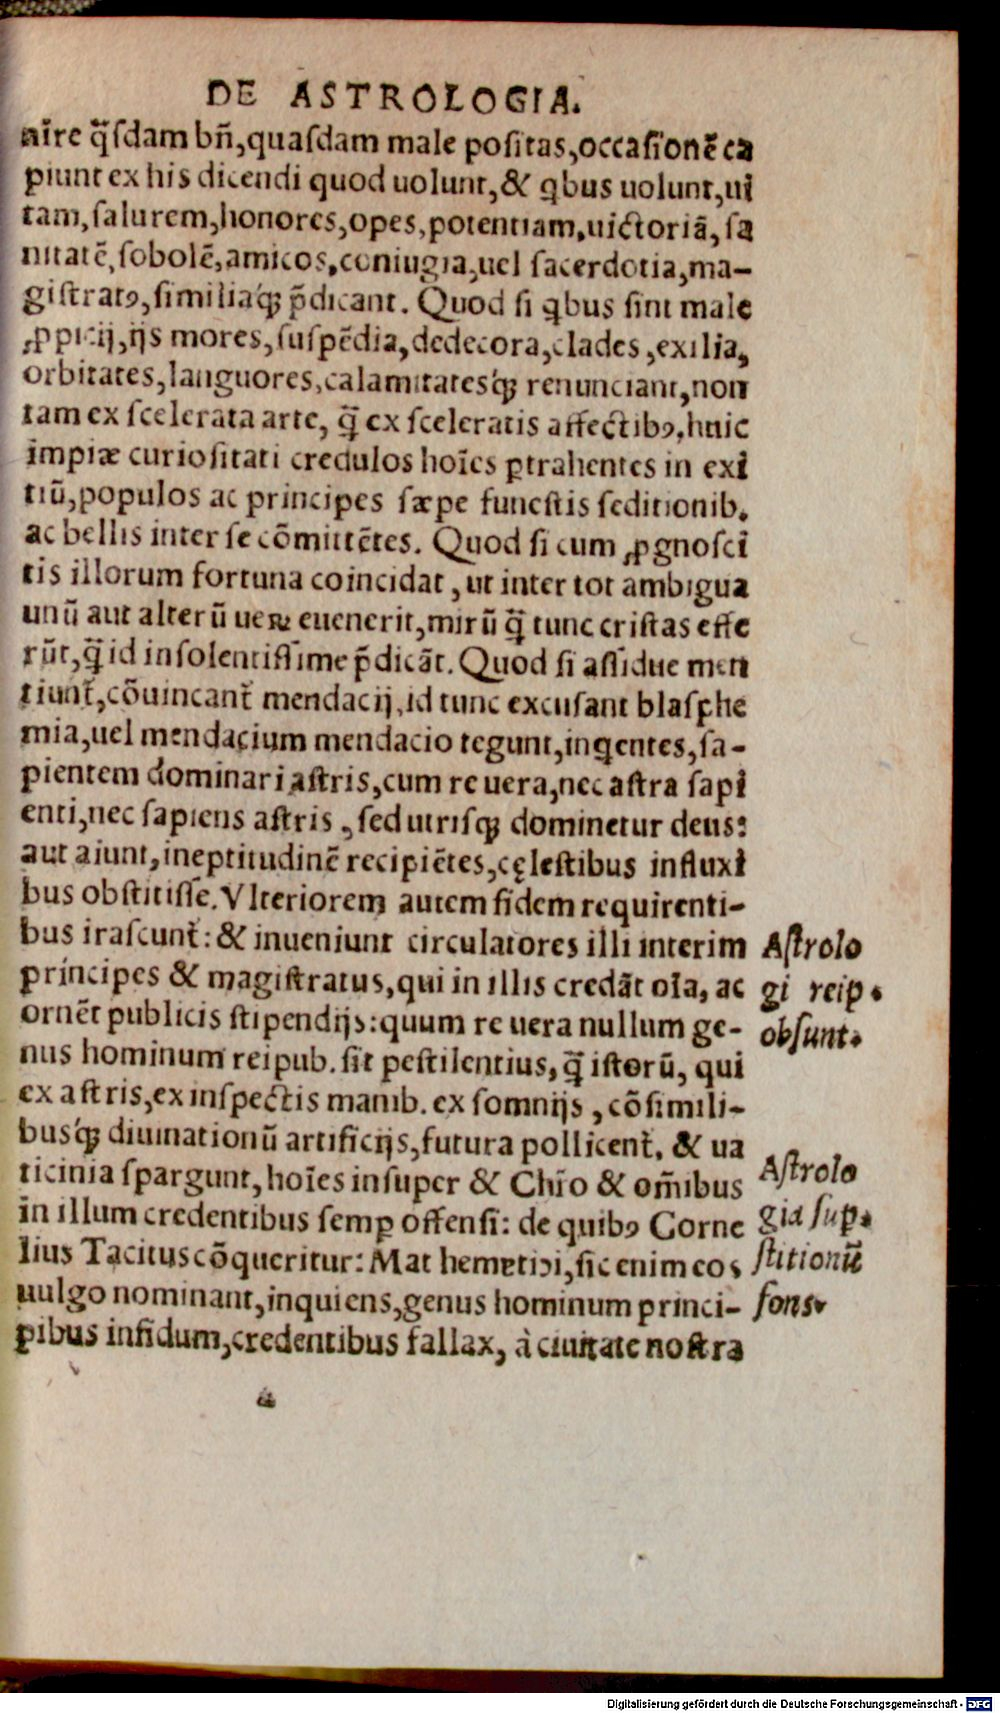 DE ASTROLOGIA.
aīre q̃ſdam bñ, quaſdam male poſitas, occaſionē ca
piunt ex his dicendi quod uolunt, & ꝗbus uolunt, ui
tam, ſalutem, honores, opes, potentiam, uictoriā, ſa
nitatē, ſobolē, amicos, coniugia, uel ſacerdotia, ma-
giſtratꝰ, ſimiliaq́ꝫ p̃dicant. Quod ſi ꝗbus ſint male
ꝓpicij, ijs mores, ſuſpēdia, dedecora, clades, exilia,
orbitates, languores, calamitatesq́ꝫ renunciant, non
tam ex ſcelerata arte, q̃ ex ſceleratis affectibꝰ, huic
impiæ curioſitati credulos hoīes ꝑtrahentes in exi
tiū, populos ac principes ſæpe funeſtis ſeditionib.
ac bellis inter ſe cōmittētes. Quod ſi cum ꝓgnoſci
tis illorum fortuna coincidat, ut inter tot ambigua
unū aut alterū ueꝝ euenerit, mirū q̃ tunc criſtas effe
rūt, q̃ id inſolentiſſime p̃dicāt. Quod ſi aſſidue men
tiunt᷑, cōuincant᷑ mendacij, id tunc excuſant blaſphe
mia, uel mendacium mendacio tegunt, inꝗentes, ſa-
pientem dominari aſtris, cum re uera, nec aſtra ſapi
enti, nec ſapiens aſtris, ſed utriſqꝫ dominetur deus:
aut aiunt, ineptitudinē recipiētes, cęleſtibus influxi
bus obſtitiſſe. Vlteriorem autem fidem requirenti-
bus iraſcunt᷑: & inueniunt circulatores illi interim
principes & magiſtratus, qui in illis credāt oīa, ac
ornēt publicis ſtipendijs: quum re uera nullum ge-
nus hominum reipub. ſit peſtilentius, q̃ iſtorū, qui
ex aſtris, ex inſpectis manib. ex ſomnijs, cōſimili-
busq́ꝫ diuinationū artificijs, futura pollicent᷑, & ua
ticinia ſpargunt, hoīes inſuper & Chr̄o & om̃ibus
in illum credentibus ſemꝑ offenſi: de quibꝰ Corne
lius Tacitus cōqueritur: Mathematici, ſic enim eos
uulgo nominant, inquiens, genus hominum princi-
pibus infidum, credentibus fallax, à ciuitate noſtra
Aſtrolo
gi reip.
obſunt.
Aſtrolo
gia ſuꝑ.
ſtitionū
fons.
Digitalisierung gefördert durch die Deutsche Forschungsgemeinschaft - DFG